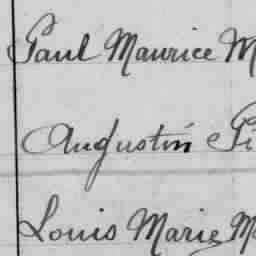 Paul Maurice M
Augustin Pi
Louis Marie Ma